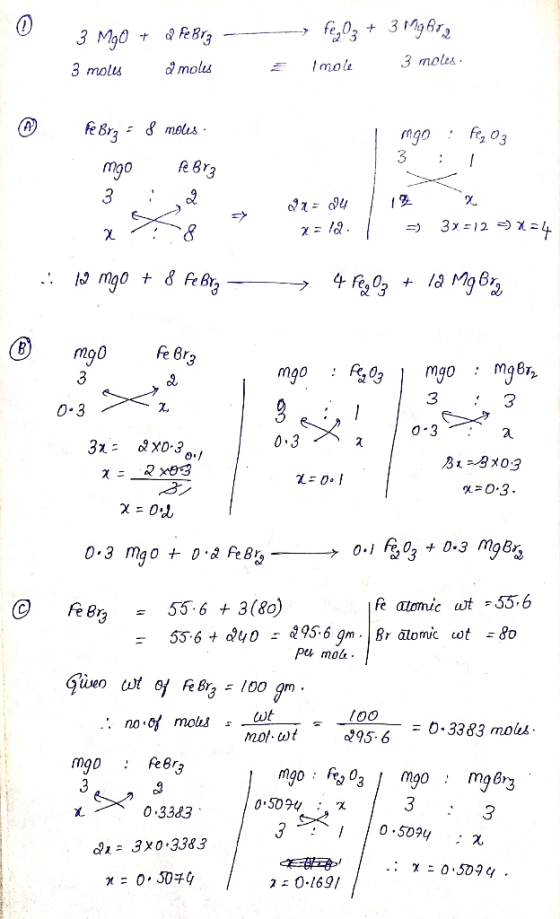 ① 3 MgO + 2 FeBr3 ⟶ Fe2O3 + 3 MgBr2
3 moles 2 moles = 1 mole 3 moles.
Ⓐ FeBr3 = 8 moles.
MgO FeBr3
3 : 2
x : 8
⇒ 2x = 24
x = 12.
MgO : Fe2O3
3 : 1
12 x
⇒ 3x = 12 ⇒ x = 4
∴ 12 MgO + 8 FeBr3 ⟶ 4 Fe2O3 + 12 MgBr2
Ⓑ MgO FeBr3
3 2
0.3 x
3x = 2x0.3
0.1
x = 2x0.3
3
x = 0.2
MgO : Fe2O3
3 : 1
0.3 x
x = 0.1
MgO : MgBr2
3 : 3
0.3 : x
3x = 3x0.3
x = 0.3.
0.3 MgO + 0.2 FeBr2 ⟶ 0.1 Fe2O3 + 0.3 MgBr2
Ⓒ FeBr3 = 55.6 + 3(80)
= 55.6 + 240 = 295.6 gm.
per mole.
Fe atomic wt = 55.6
Br atomic wt = 80
Given wt of FeBr3 = 100 gm.
∴ no.of moles = wt / mol.wt = 100 / 295.6 = 0.3383 moles.
MgO : FeBr3
3 2
x 0.3383
2x = 3x0.3383
x = 0.5074
MgO : Fe2O3
0.5074 : x
3 : 1
x = 0.1691
MgO : MgBr3
3 : 3
0.5074 : x
∴ x = 0.5074.